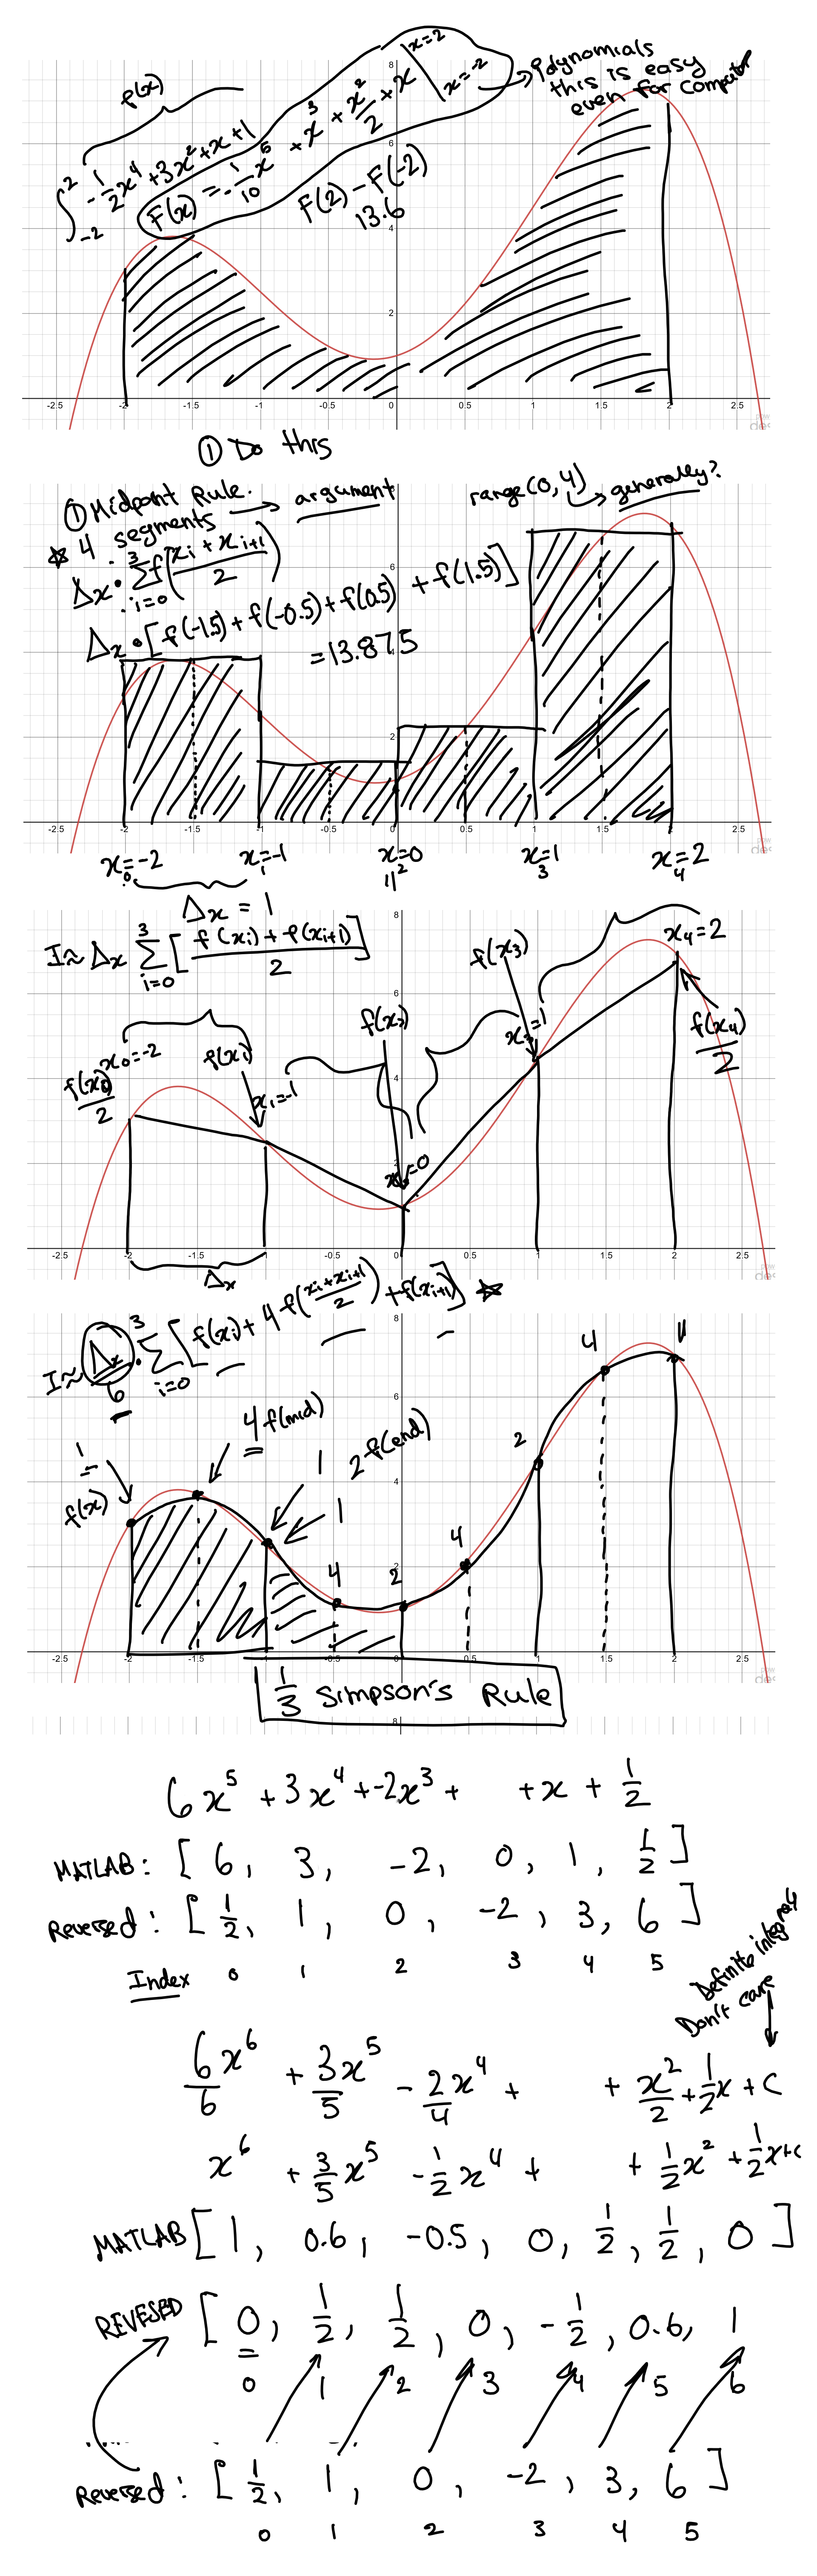 f(x)
∫_{-2}^{2} -1/2 x^4 + 3x^2 + x + 1
F(x) = -1/10 x^5 + x^3 + x^2/2 + x | x=2 x=-2
→ Polynomials
this is easy
even for computer
F(2) - F(-2)
13.6
8
4
2
-2.5 -2 -1.5 -1 -0.5 0 0.5 1 1.5 2 2.5
① Do this
① Midpoint Rule. → argument
range(0,4) → generally?
☆ 4 segments
Δx · Σ_{i=0}^{3} f((xi + xi+1)/2)
Δx · [f(-1.5) + f(-0.5) + f(0.5) + f(1.5)]
= 13.875
6
4
2
-2.5 -2 -1.5 -1 -0.5 0 0.5 1 1.5 2 2.5
x0=-2 x1=-1 x2=0 x3=1 x4=2
Δx = 1
I≈ Δx Σ_{i=0}^{3} [(f(xi) + f(xi+1))/2]
8
6
4
2
f(x0)/2 x0=-2 f(x1) x1=-1 f(x2) x2=0 f(x3) x3=1 x4=2 f(x4)/2
-2.5 -2 -1.5 -1 -0.5 0 0.5 1 1.5 2 2.5
Δx
I≈ Δx/6 · Σ_{i=0}^{3} [f(xi) + 4f((xi+xi+1)/2) + f(xi+1)] ☆
8
6
4
2
1 f(x) 4f(mid) 1 2f(end) 1
4 2 4 2 4 1
-2.5 -2 -1.5 -1 -0.5 0 0.5 1 1.5 2 2.5
1/3 Simpson's Rule
8
6x^5 + 3x^4 + -2x^3 + + x + 1/2
MATLAB: [ 6, 3, -2, 0, 1, 1/2 ]
Reversed: [ 1/2, 1, 0, -2, 3, 6 ]
Index 0 1 2 3 4 5
Definite integral
Don't care
6x^6/6 + 3x^5/5 - 2x^4/4 + + x^2/2 + 1/2 x + C
x^6 + 3/5 x^5 - 1/2 x^4 + + 1/2 x^2 + 1/2 x + C
MATLAB [ 1, 0.6, -0.5, 0, 1/2, 1/2, 0 ]
REVESED [ 0, 1/2, 1/2, 0, -1/2, 0.6, 1
0 1 2 3 4 5 6
Reversed: [ 1/2, 1, 0, -2, 3, 6 ]
0 1 2 3 4 5